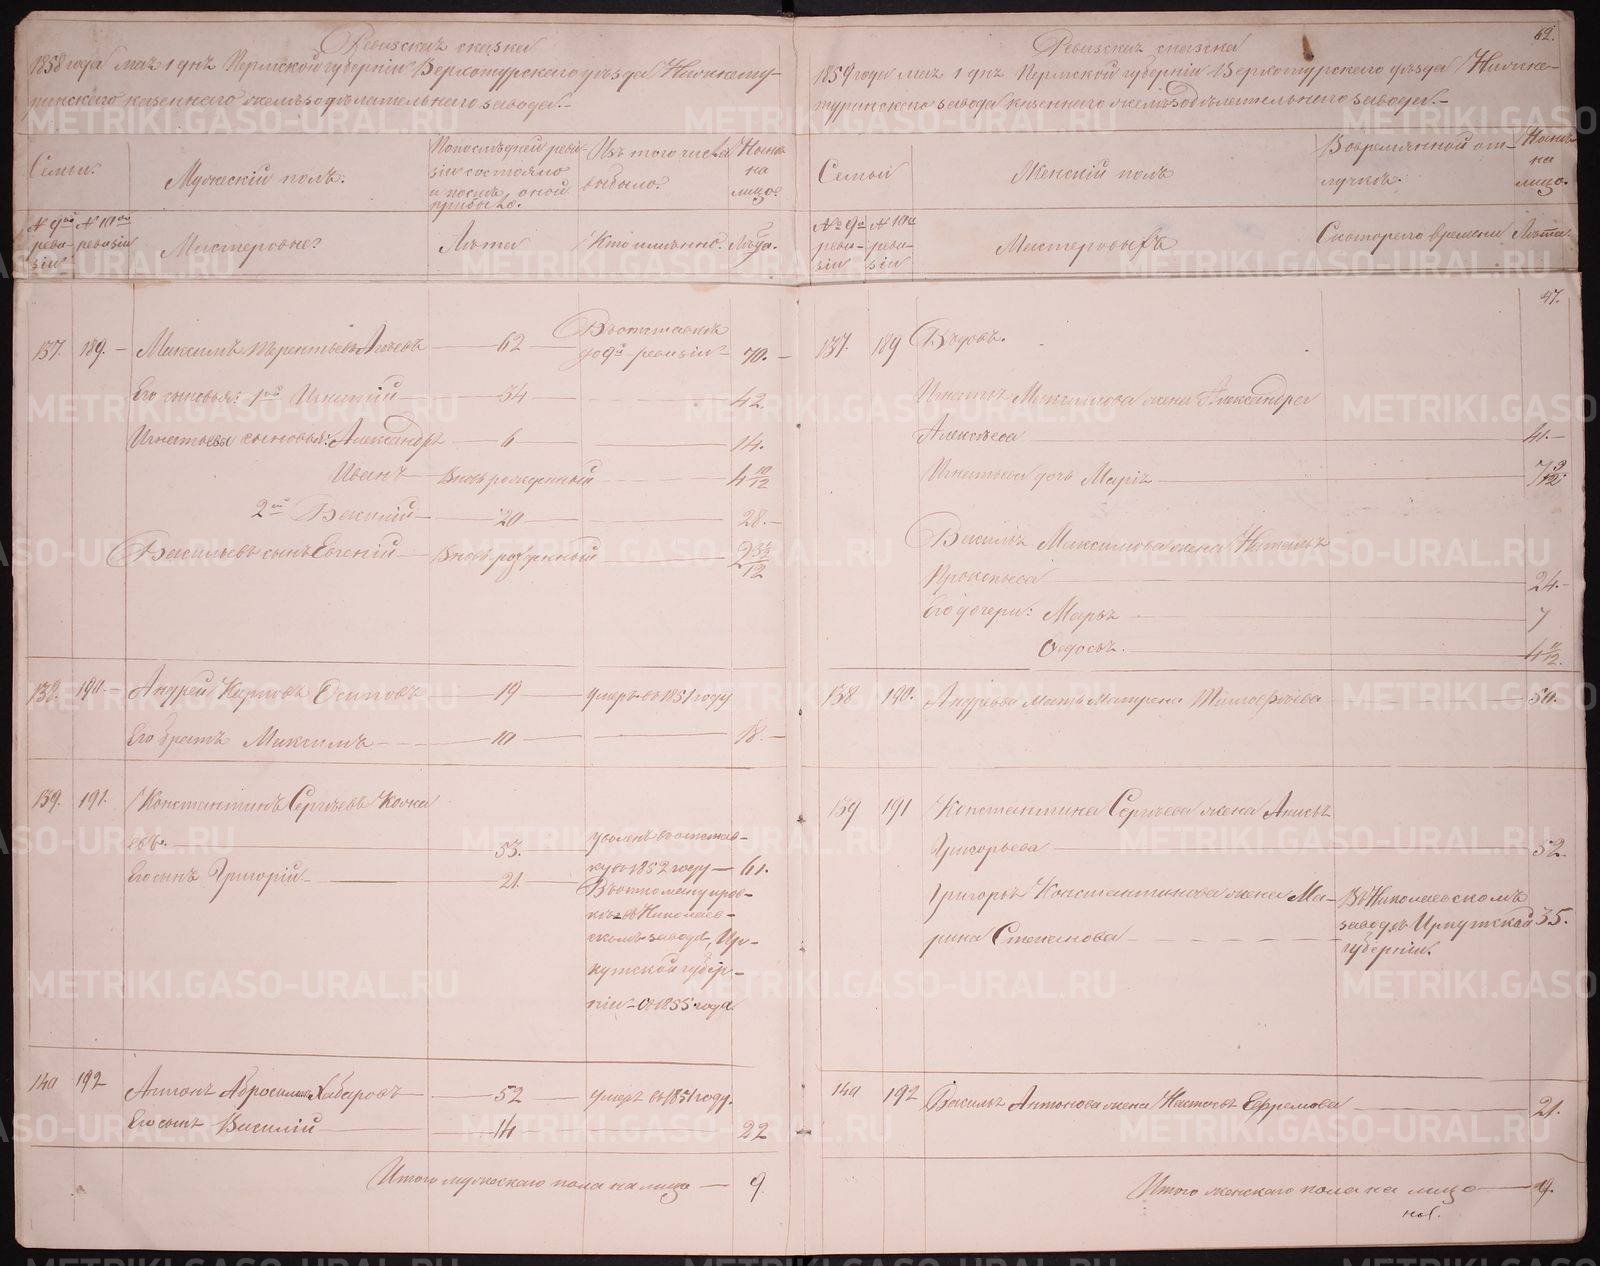 Ревизская сказка
1858 года мая 1 дня Пермской губернии Верхотурского уѣзда Нижнету-
ринскаго казеннаго желѣзодѣлательнаго завода.
Семьи.
Мужескій полъ.
По послѣдней реви-
зіи состояло
и послѣ оной
прибыло.
Изъ того числа
выбыло.
Нынѣ
на
лицо.
№ 9ой
реви-
зіи
№ 10ой
ревизіи
Мастеровые
Лѣта
Кто именно.
Лѣта.
137. 189. Максимъ Терентьевъ 62 Въ отставкѣ
до 9й ревизіи 70.
Его сыновья: 1ый Игнатій 34 42.
Игнатьевы сыновья: Александръ 6 14.
Иванъ Вновь рожденный 4 10/12
2ой Василій 20 28.
Васильевъ сынъ Евгеній Вновь рожденный
138. 190. Андрей Карповъ Осиповъ 19 умеръ въ 1851 году
Его братъ Максимъ 10 18.
139. 191. Константинъ Сергѣевъ
евъ. 53. уволенъ въ отстав-
ку въ 1852 году 61.
Его сынъ Григорій 21. Въ откомандиров-
кѣ въ Николаев-
скомъ заводѣ, Ир-
кутской губер-
ніи съ 1855 года.
140 192 Антонъ Абросимовъ Хабаровъ 52 умеръ въ 1851 году.
Его сынъ Василій 14 22
Итого мужескаго пола на лицо 9.
62.
Ревизская сказка
1859 года мая 1 дня Пермской губерніи Верхотурскаго уѣзда Нижне-
туринскаго завода казеннаго желѣзодѣлательнаго завода.
Семьи
Женскій полъ
Во временной от-
лучкѣ.
Нынѣ
на
лицо.
№ 9й
реви-
зіи
№ 10й
реви-
зіи
Мастеровыхъ
Съ котораго времени
Лѣта.
47.
137. 189 Вдовъ.
Игнатья Максимова жена Александра
Алексѣева 41.
Игнатьева дочь Марія 7 3/12
Василья Максимова жена Наталья
Прокопьева 24.
Его дочери: Марья 7
Федосья.
138 190. Андреева мать Матрена Тимофѣева 50.
139 191 Константина Сергѣева жена Анисья
Григорьева 52.
Григорья Константинова жена Ма- Въ Николаевскомъ
рина Степанова заводѣ Иркутской 35.
губерніи.
140 192 Василья Антонова жена Настасья Ефремова 21.
Итого женскаго пола на лицо 9.
METRIKI.GASO-URAL.RU